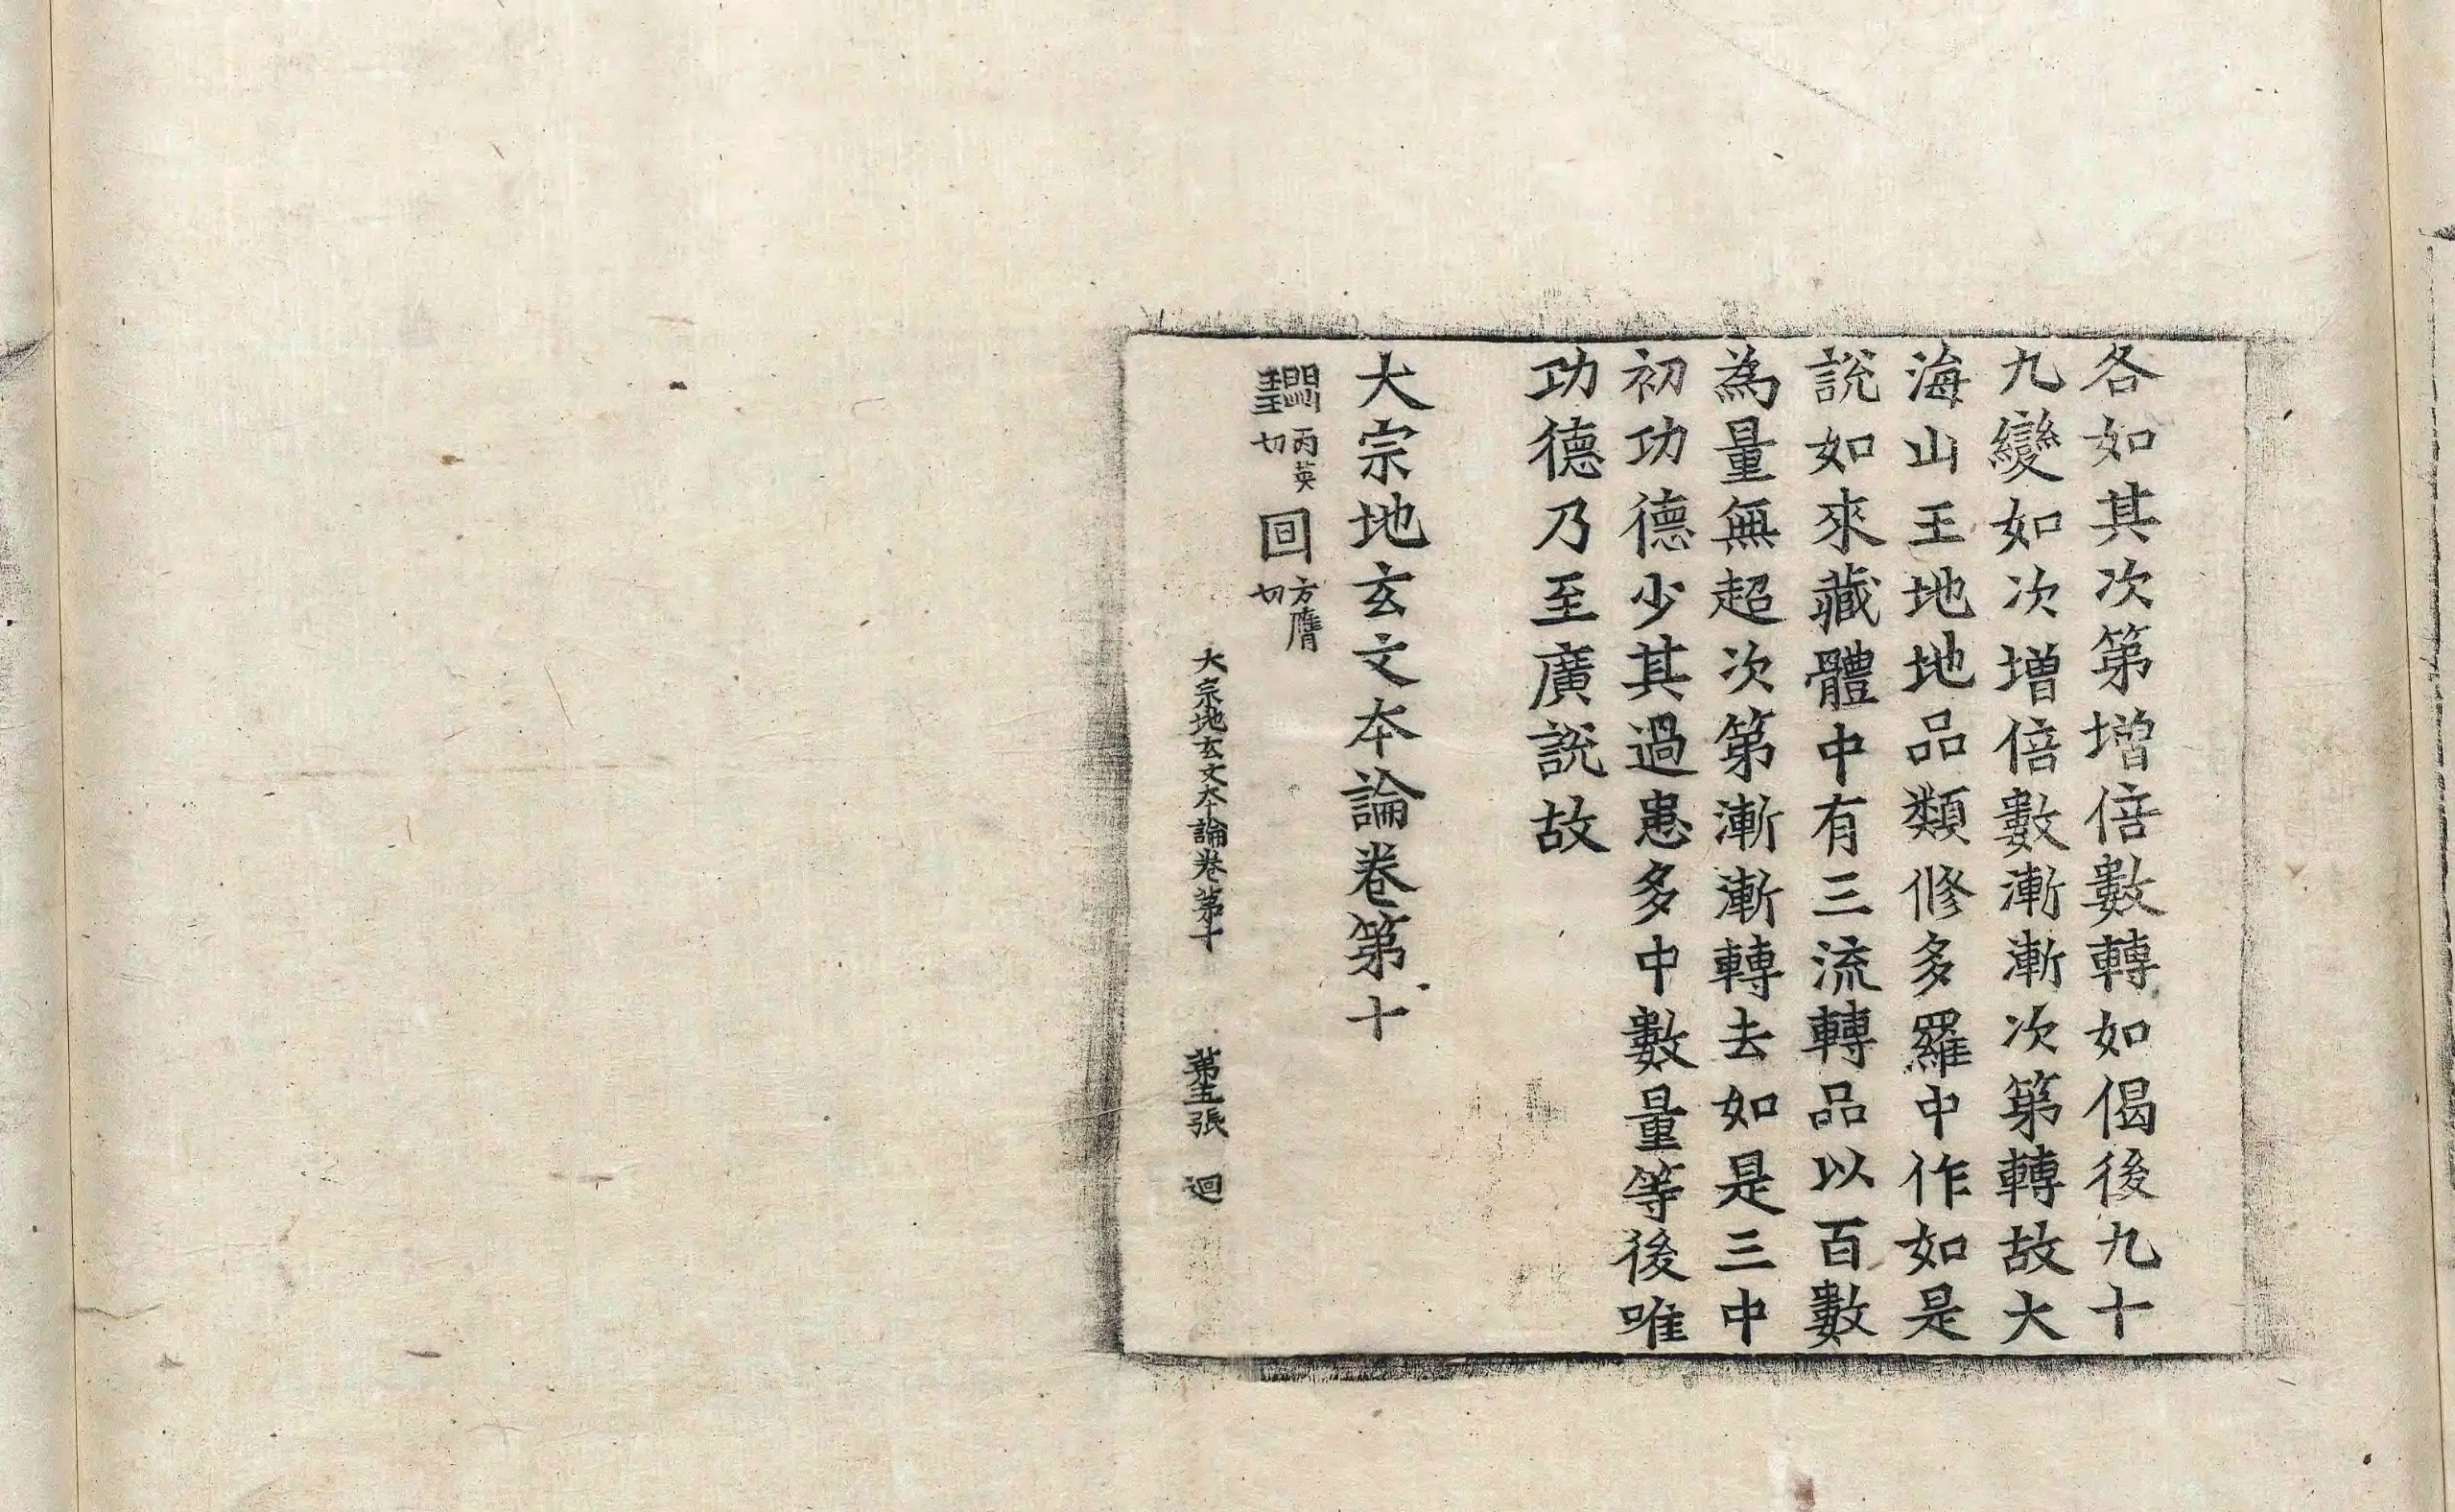 各如其次第增倍數轉如偈後九十
九變如次增倍數漸漸次第轉故大
海山王地地品類修多羅中作如是
說如來藏體中有三流轉品以百數
為量無超次第漸漸轉去如是三中
初功德少其過患多中數量等後唯
功德乃至廣説故
大宗地玄文本論卷第十
丙英切 囙 方膺切
大宗地玄文本論卷第十 第 張 迴